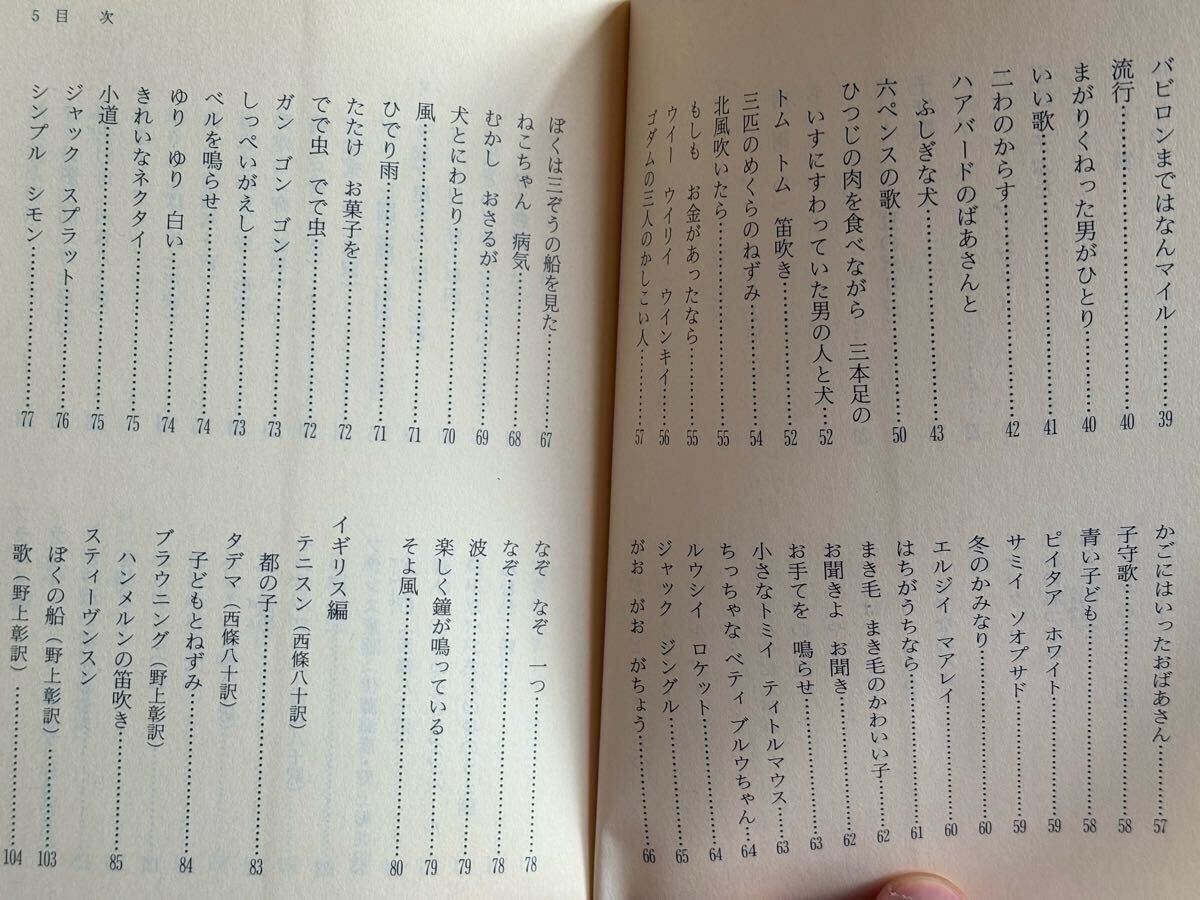 バビロンまではなんマイル……39
流行……40
まがりくねった男がひとり……40
いい歌……41
二わのからす……42
ハアバードのばあさんと
ふしぎな犬……43
六ペンスの歌……50
ひつじの肉を食べながら 三本足の
いすにすわっていた男の人と犬……52
トム トム 笛吹き……52
三匹のめくらのねずみ……54
北風吹いたら……55
もしも お金があったなら……55
ウイー ウイリイ ウインキイ……56
ゴダムの三人のかしこい人……57
かごにはいったおばあさん……57
子守歌……58
青い子ども……58
ピイタア ホワイト……59
サミイ ソオプサド……59
冬のかみなり……60
エルジイ マアレイ……60
はちがうちなら……61
まき毛 まき毛のかわいい子……62
お聞きよ お聞き……62
お手てを 鳴らせ……63
小さなトミイ ティトルマウス……63
ちっちゃな ベティ ブルウちゃん……64
ルウシイ ロケット……64
ジャック ジングル……65
がお がお がちょう……66
5 目 次
ぼくは三ぞうの船を見た……67
ねこちゃん 病気……68
むかし おさるが……69
犬とにわとり……70
風……71
ひでり雨……71
たたけ お菓子を……72
でで虫 でで虫……72
ガン ゴン ゴン……73
しっぺいがえし……73
ベルを鳴らせ……74
ゆり ゆり 白い……74
きれいなネクタイ……75
小道……75
ジャック スプラット……76
シンプル シモン……77
なぞ なぞ 一つ……78
なぞ……78
波……79
楽しく鐘が鳴っている……79
そよ風……80
イギリス編
テニスン（西條八十訳）
都の子……83
タデマ（西條八十訳）
子どもとねずみ……84
ブラウニング（野上彰訳）
ハンメルンの笛吹き……85
スティーヴンスン
ぼくの船（野上彰訳）……103
歌（野上彰訳）……104